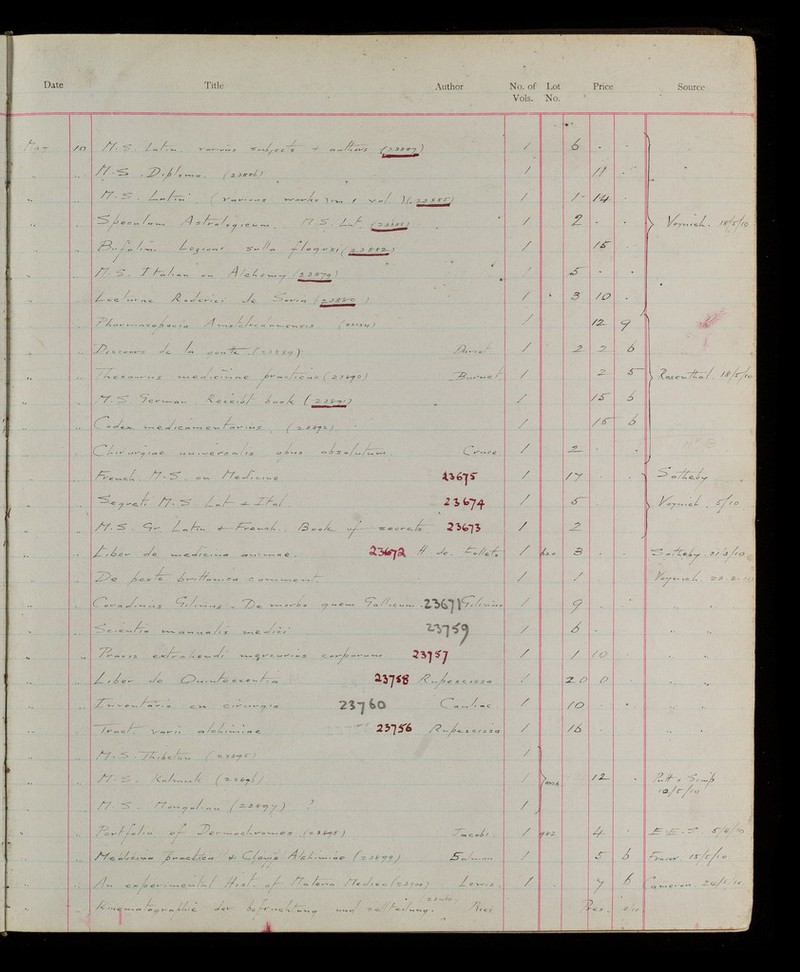 Date Title Author No. of Vols. Lot No. Price Source
May 10 M.S. Latin various subjects & authors (23887) 1 6 . .
M.S. Diploma. (23886) 1 11
M.S. Latin (various works in 1 vol.) (23885) 1 1 14
Speculum Astrologicum. M.S. Lat. 1 2 . . Voynich. 18/5/10
Bufalini. Legioni sulla (23882) 1 15
M.S. Italian on Alchemy (23879) 1 5 . .
Roderici de Soria (23880) 1 3 10 .
Pharmacopoeia Amstelredamensis 1 12 9
Discours de la goutte (23889) 1 2 2 6
Thesaurus medicinae practicae (23890) Burnet 1 2 5 Rosenthal. 18/5/10
M.S. German Receipt book (23891) 1 15 6
Codex medicamentarius. (23892) 1 15 6
Chirurgiae universalis opus absolutum. Cruce 1 2 . .
French M.S. on Medicine 23675 1 17 . Sotheby
Segreti M.S. Lat & Ital 23674 1 5 Voynich. 5/10
M.S. Gr. Latin & French. Book of secrets 23673 1 2
Liber de medicina animae. 23672 H. de 1 3 . . Sotheby
De peste brittanica comment. 1 1 . . Voynich. 22.2.
Coradinus Gilinus. De morbo quem Gallicum. 23671 Gilinus 1 9
Scientia manualis medici 23759 1 6
Praxis extrahendi mercurios corporum 23757 1 1 10
Liber de Quintessentia 23758 Rupescissa 1 20 0
Inventario en cirurgia 23760 Cauliac 1 10
Tract. varii alchimiae 23756 Rupescissa 1 16
M.S. Thibetan (23895) 1
M.S. Kalmuk (23896) 1 12 . Putt & Simp 10/5/10
M.S. Mongolian (23897) ? 1
Portfolio of Dermochromes (23898) Jacobi 1 4 .
Medicina practica & Clavis Alchimiae (23899) Salmon 1 5 6 15/5/10
An experimental Hist. of Materia Medica Lewis 1 7 6 Cameron. 24/5/10
Kinematographie der befruchtung und zellteilung. Ries Pres.